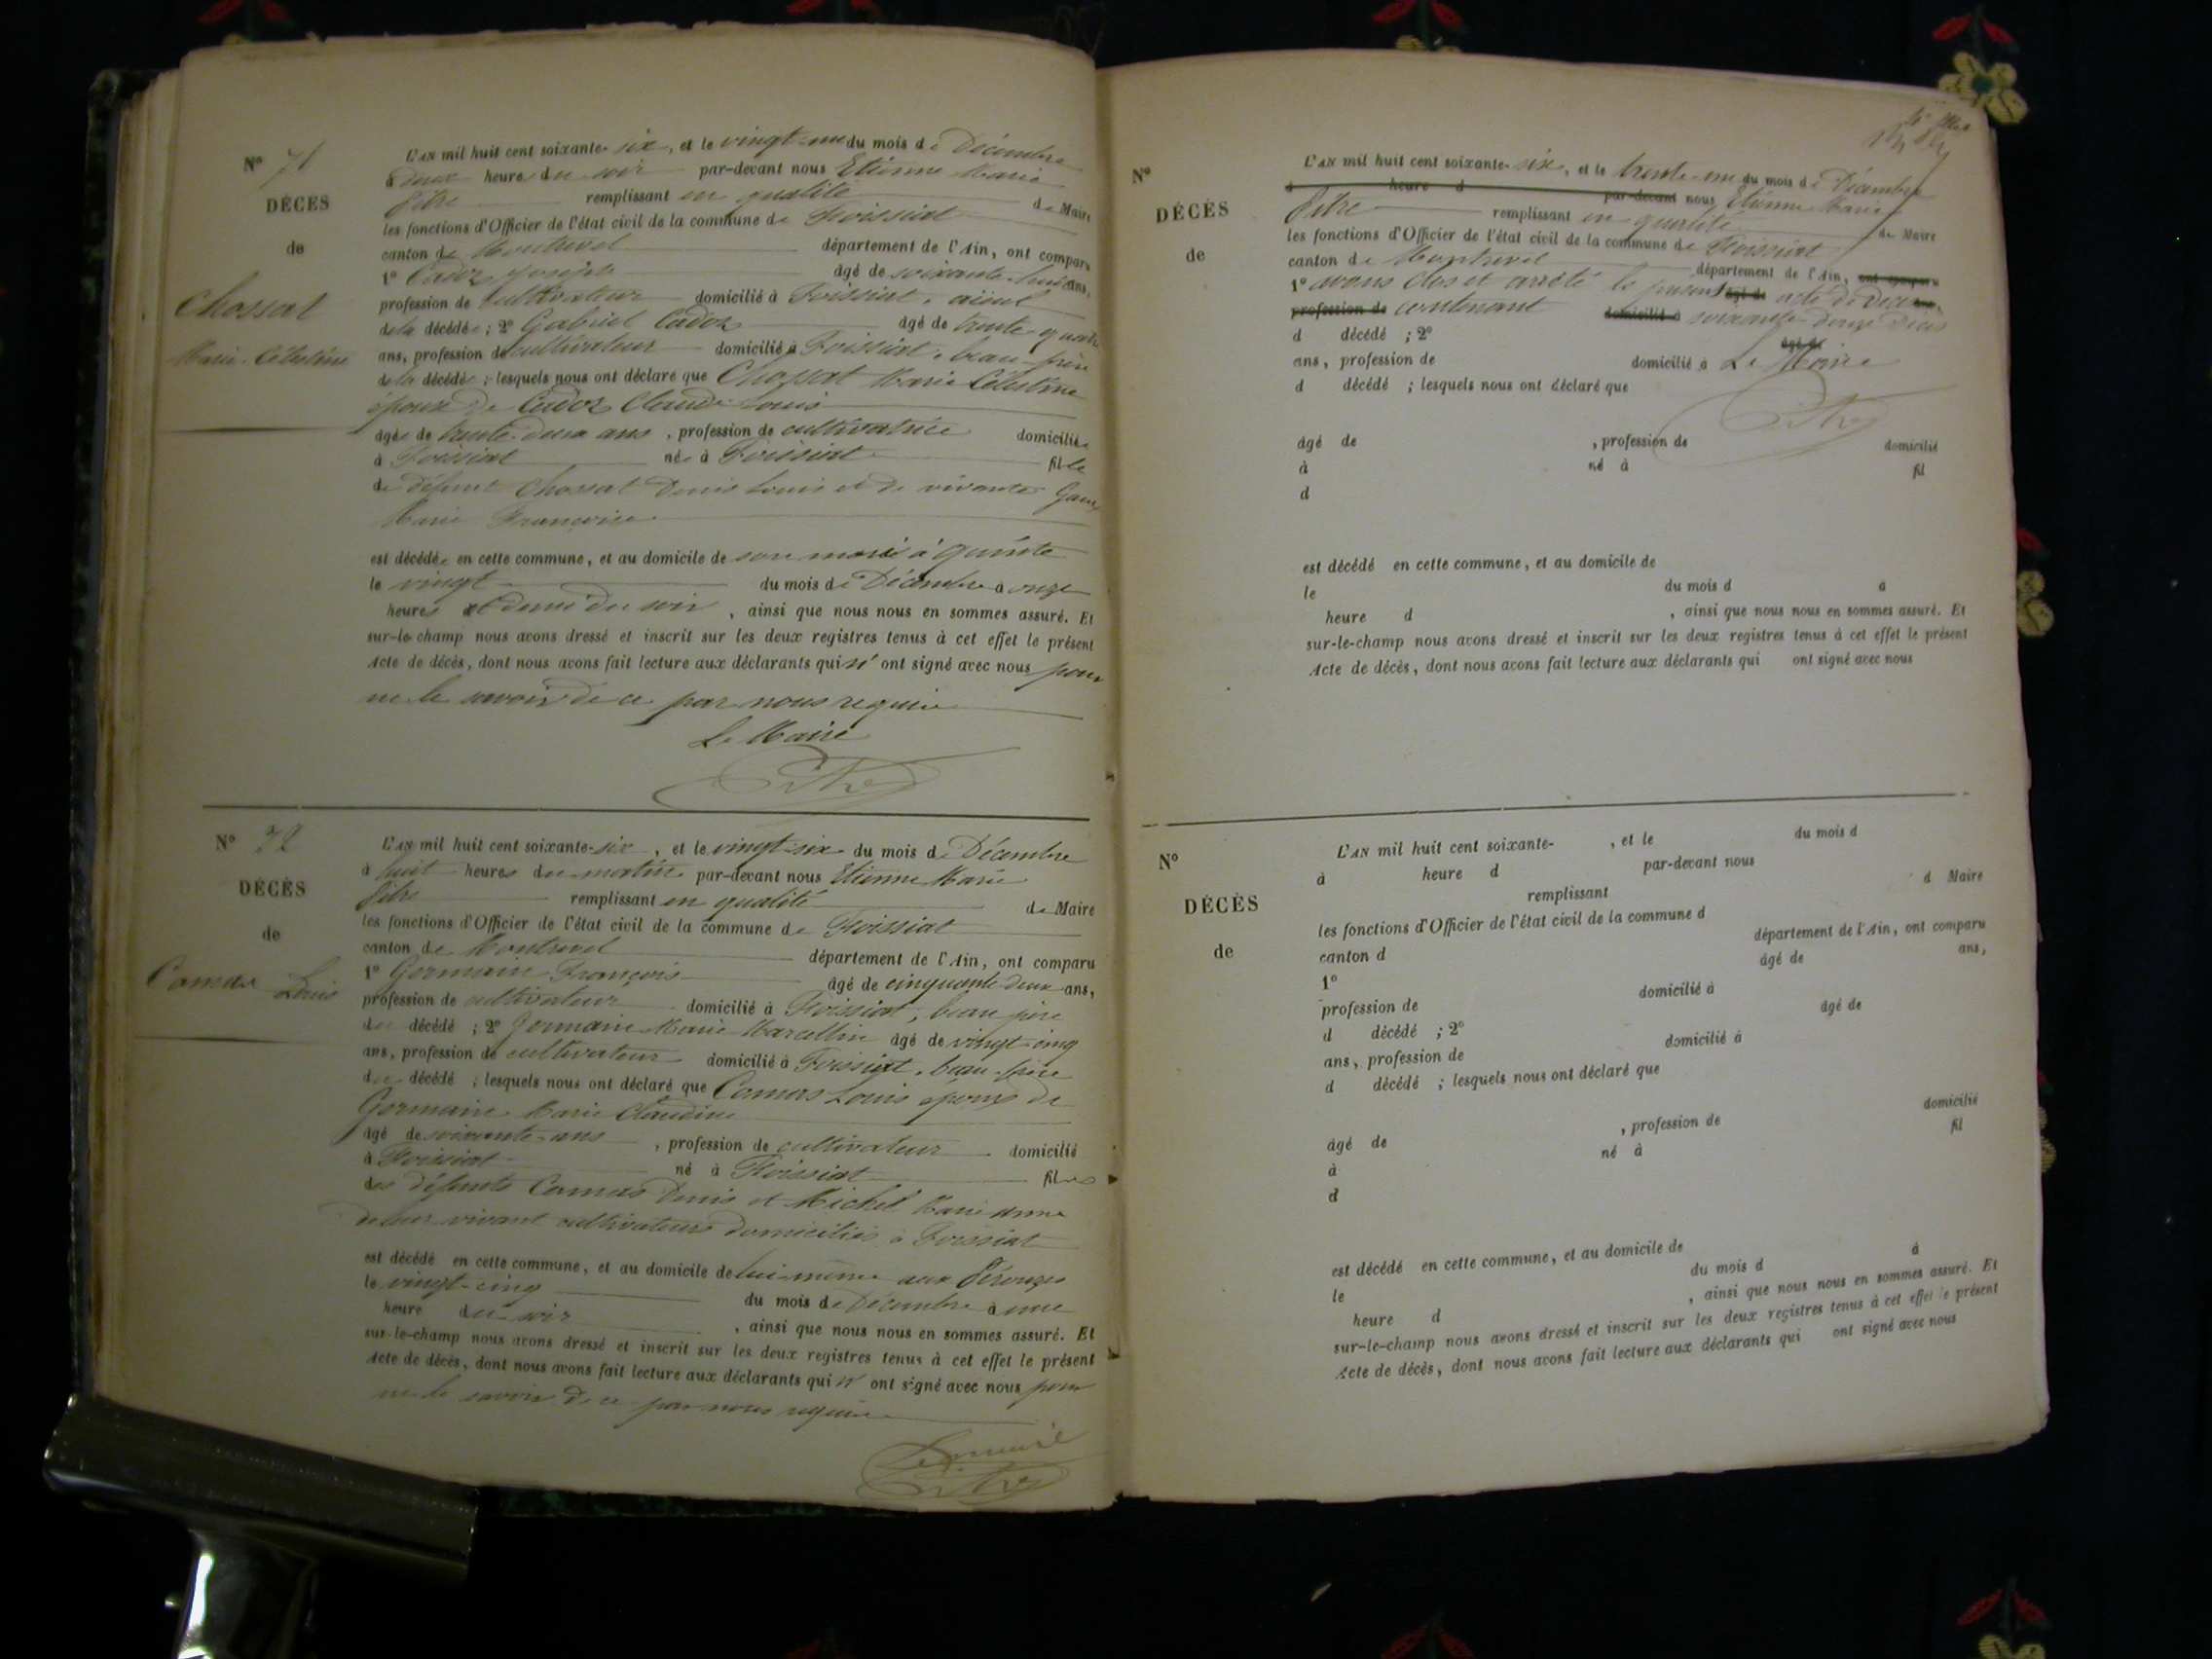 N° 71
DÉCÈS
de
Chossat
Marie Célestine
L'AN mil huit cent soixante-six, et le vingt-un du mois de Décembre
à deux heures du soir par-devant nous Etienne Marie
Pitre remplissant en qualité de Maire
les fonctions d'Officier de l'état civil de la commune de Foissiat
canton de Montrevel département de l'Ain, ont comparu
1° Cadoz Joseph âgé de soixante-huit ans,
profession de cultivateur domicilié à Foissiat, aïeul
de la décédée; 2° Gabriel Cadoz âgé de trente-quatre
ans, profession de cultivateur domicilié à Foissiat, beau-frère
de la décédée; lesquels nous ont déclaré que Chossat Marie Célestine
épouse de Cadoz Claude Louis
âgée de trente deux ans, profession de cultivatrice domiciliée
à Foissiat née à Foissiat fille
de défunt Chossat Denis Louis et de vivante
Marie Françoise
est décédée en cette commune, et au domicile de son mari à
le vingt du mois de Décembre à onze
heures et demie du soir, ainsi que nous nous en sommes assuré. Et
sur-le-champ nous avons dressé et inscrit sur les deux registres tenus à cet effet le présent
Acte de décès, dont nous avons fait lecture aux déclarants qui n'ont signé avec nous pour
ne le savoir de ce par nous requis
Le Maire
Pitre
N° 72
DÉCÈS
de
Comas Louis
L'AN mil huit cent soixante-six, et le vingt-six du mois de Décembre
à huit heures du matin par-devant nous Etienne Marie
Pitre remplissant en qualité de Maire
les fonctions d'Officier de l'état civil de la commune de Foissiat
canton de Montrevel département de l'Ain, ont comparu
1° Germain François âgé de cinquante deux ans,
profession de cultivateur domicilié à Foissiat, beau père
du décédé; 2° Germain Marie Marcellin âgé de vingt-cinq
ans, profession de cultivateur domicilié à Foissiat, beau-frère
du décédé; lesquels nous ont déclaré que Comas Louis époux de
Germain Marie Claudine
âgé de soixante-ans, profession de cultivateur domicilié
à Foissiat né à Foissiat fils
des défunts Comas Denis et Michel Marie Anne
de leur vivant cultivateurs domiciliés à Foissiat
est décédé en cette commune, et au domicile de lui-même aux
le vingt-cinq du mois de Décembre à une
heure du soir, ainsi que nous nous en sommes assuré. Et
sur-le-champ nous avons dressé et inscrit sur les deux registres tenus à cet effet le présent
Acte de décès, dont nous avons fait lecture aux déclarants qui n'ont signé avec nous pour
ne le savoir de ce par nous requis
Le maire
Pitre
N°
DÉCÈS
de
L'AN mil huit cent soixante-six, et le trente-un du mois de Décembre
à heure d par-devant nous Etienne Marie
Pitre remplissant en qualité de Maire
les fonctions d'Officier de l'état civil de la commune de Foissiat
canton de Montrevel département de l'Ain, ont comparu
1° avons clos et arrêté le présent âgé de acte de décès ans,
profession de contenant domicilié à soixante-douze décès
d décédé ; 2° âgé de
ans, profession de domicilié à Le Maire
d décédé ; lesquels nous ont déclaré que
Pitre
âgé de , profession de domicilié
à né à fil
d
est décédé en cette commune, et au domicile de
le du mois d à
heure d , ainsi que nous nous en sommes assuré. Et
sur-le-champ nous avons dressé et inscrit sur les deux registres tenus à cet effet le présent
Acte de décès, dont nous avons fait lecture aux déclarants qui ont signé avec nous
N°
DÉCÈS
de
L'AN mil huit cent soixante- , et le du mois d
à heure d par-devant nous
remplissant d Maire
les fonctions d'Officier de l'état civil de la commune d
canton d département de l'Ain, ont comparu
1° âgé de ans,
profession de domicilié à
d décédé ; 2° âgé de
ans, profession de domicilié à
d décédé ; lesquels nous ont déclaré que
âgé de , profession de domicilié
à né à fil
d
est décédé en cette commune, et au domicile de
le du mois d à
heure d , ainsi que nous nous en sommes assuré. Et
sur-le-champ nous avons dressé et inscrit sur les deux registres tenus à cet effet le présent
Acte de décès, dont nous avons fait lecture aux déclarants qui ont signé avec nous